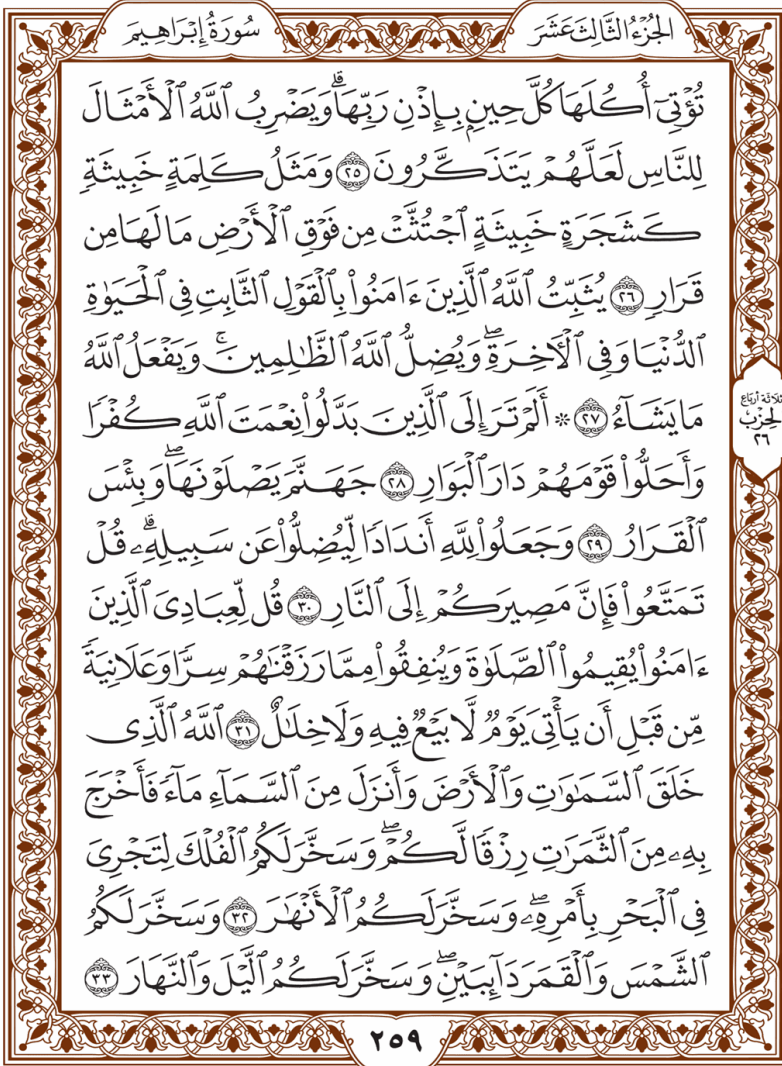 سُورَةُ إِبْرَاهِيمَ
الجُزْءُ الثَّالِثَ عَشَرَ
تُؤۡتِيٓ أُكُلَهَا كُلَّ حِينِۭ بِإِذۡنِ رَبِّهَاۗ وَيَضۡرِبُ ٱللَّهُ ٱلۡأَمۡثَالَ
لِلنَّاسِ لَعَلَّهُمۡ يَتَذَكَّرُونَ ٢٥ وَمَثَلُ كَلِمَةٍ خَبِيثَةٖ
كَشَجَرَةٍ خَبِيثَةٍ ٱجۡتُثَّتۡ مِن فَوۡقِ ٱلۡأَرۡضِ مَا لَهَا مِن
قَرَارٖ ٢٦ يُثَبِّتُ ٱللَّهُ ٱلَّذِينَ ءَامَنُواْ بِٱلۡقَوۡلِ ٱلثَّابِتِ فِي ٱلۡحَيَوٰةِ
ٱلدُّنۡيَا وَفِي ٱلۡأٓخِرَةِۖ وَيُضِلُّ ٱللَّهُ ٱلظَّٰلِمِينَۚ وَيَفۡعَلُ ٱللَّهُ
مَا يَشَآءُ ٢٧ ۞ أَلَمۡ تَرَ إِلَى ٱلَّذِينَ بَدَّلُواْ نِعۡمَتَ ٱللَّهِ كُفۡرٗا
وَأَحَلُّواْ قَوۡمَهُمۡ دَارَ ٱلۡبَوَارِ ٢٨ جَهَنَّمَ يَصۡلَوۡنَهَاۖ وَبِئۡسَ
ٱلۡقَرَارُ ٢٩ وَجَعَلُواْ لِلَّهِ أَندَادٗا لِّيُضِلُّواْ عَن سَبِيلِهِۦۗ قُلۡ
تَمَتَّعُواْ فَإِنَّ مَصِيرَكُمۡ إِلَى ٱلنَّارِ ٣٠ قُل لِّعِبَادِيَ ٱلَّذِينَ
ءَامَنُواْ يُقِيمُواْ ٱلصَّلَوٰةَ وَيُنفِقُواْ مِمَّا رَزَقۡنَٰهُمۡ سِرّٗا وَعَلَانِيَةٗ
مِّن قَبۡلِ أَن يَأۡتِيَ يَوۡمٞ لَّا بَيۡعٞ فِيهِ وَلَا خِلَٰلٌ ٣١ ٱللَّهُ ٱلَّذِي
خَلَقَ ٱلسَّمَٰوَٰتِ وَٱلۡأَرۡضَ وَأَنزَلَ مِنَ ٱلسَّمَآءِ مَآءٗ فَأَخۡرَجَ
بِهِۦ مِنَ ٱلثَّمَرَٰتِ رِزۡقٗا لَّكُمۡۖ وَسَخَّرَ لَكُمُ ٱلۡفُلۡكَ لِتَجۡرِيَ
فِي ٱلۡبَحۡرِ بِأَمۡرِهِۦۖ وَسَخَّرَ لَكُمُ ٱلۡأَنۡهَٰرَ ٣٢ وَسَخَّرَ لَكُمُ
ٱلشَّمۡسَ وَٱلۡقَمَرَ دَآئِبَيۡنِۖ وَسَخَّرَ لَكُمُ ٱلَّيۡلَ وَٱلنَّهَارَ ٣٣
ثلاثة أرباع
الحزب
٢٦
٢٥٩